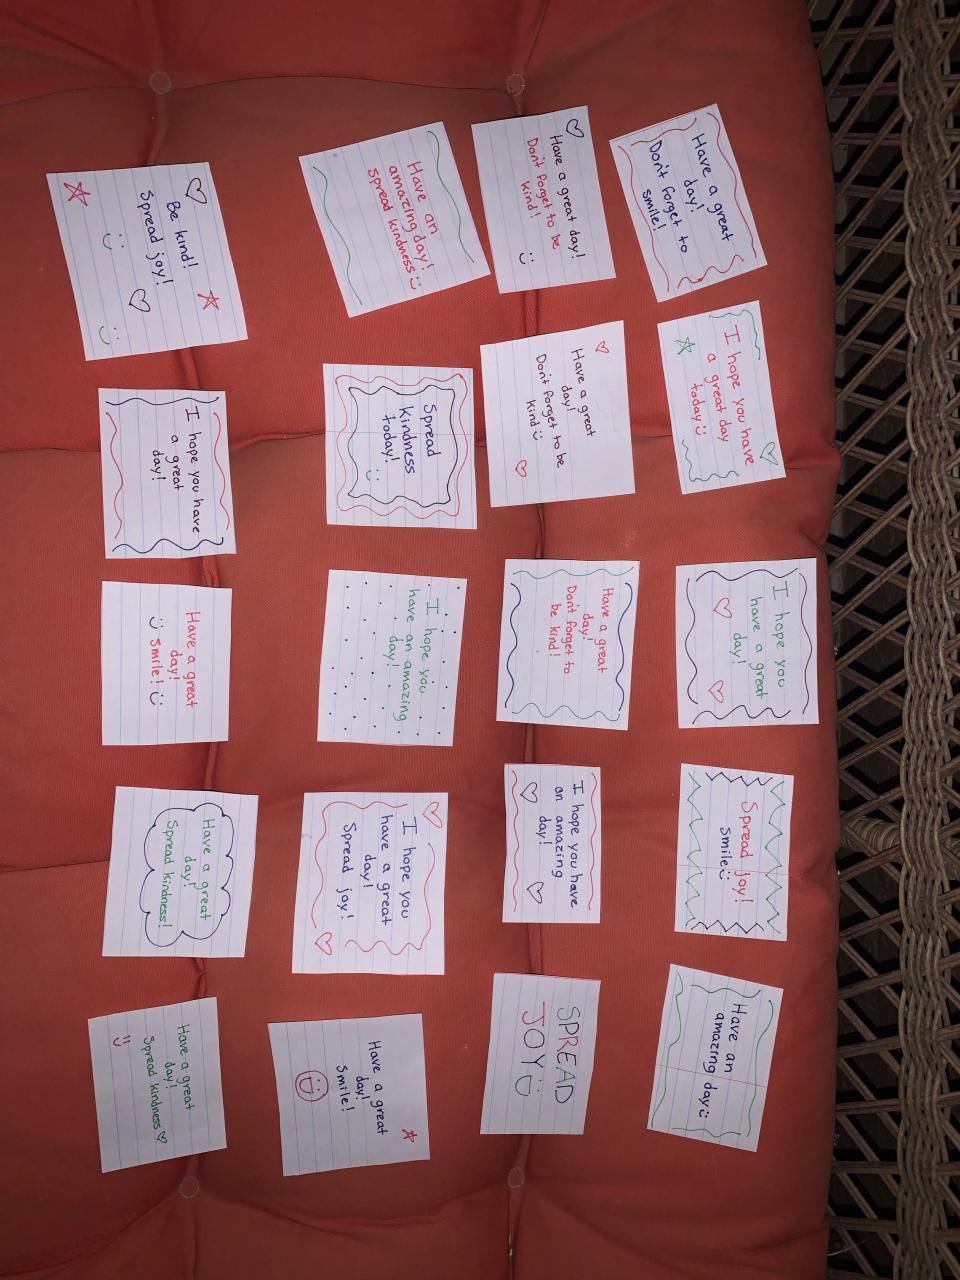 Have a great
day!
Don't forget to
smile!
I hope you have
a great day
today
I hope you
have a great
day!
Spread joy!
smile
Have an
amazing day
Have a great day!
Don't forget to be
kind!
Have a great
day!
Don't forget to be
kind
Have a great
day!
Don't forget to
be kind!
I hope you have
an amazing
day!
SPREAD
JOY
Have an
amazing day!
spread kindness
Spread
kindness
today!
I hope you
have an amazing
day!
I hope you
have a great
day!
Spread joy!
Have a great
day!
Smile!
Be kind!
Spread joy!
I hope you have
a great
day!
Have a great
day!
smile!
Have a great
day!
Spread kindness!
Have a great
day!
Spread kindness